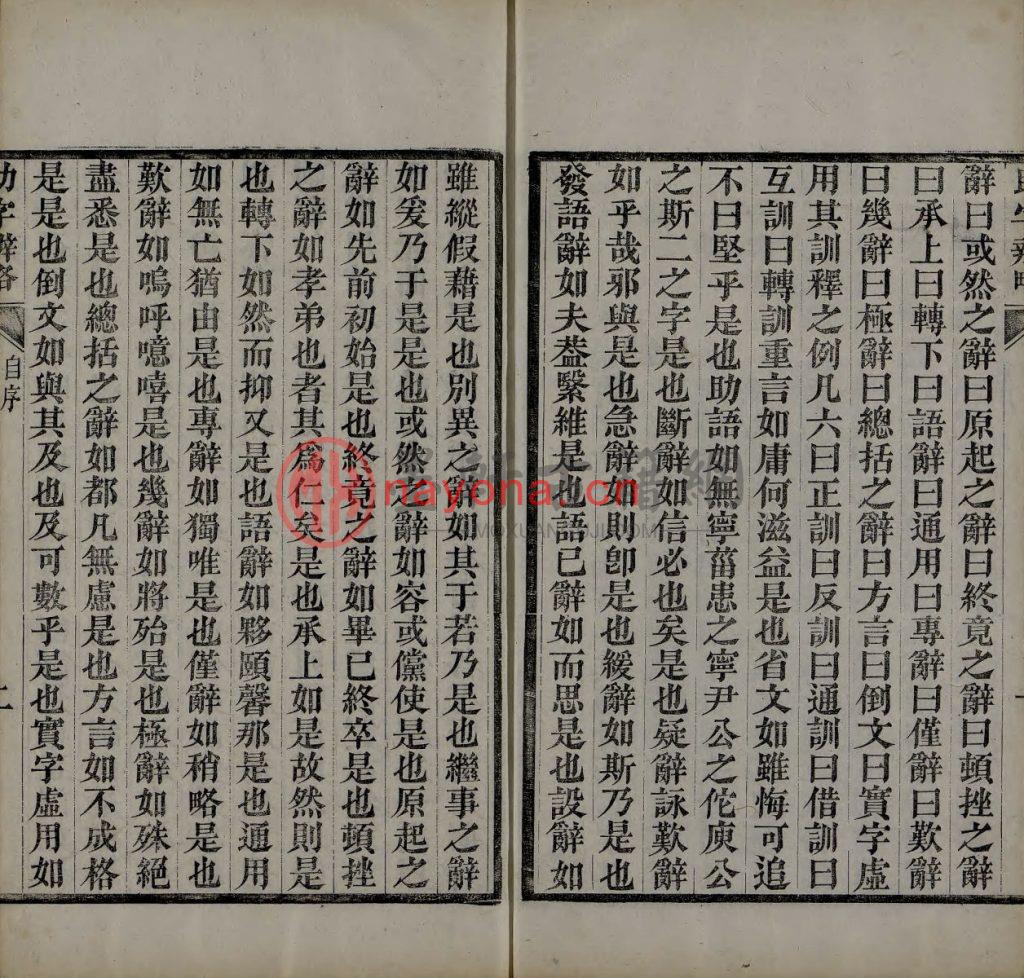 辭曰或然之辭曰原起之辭曰終竟之辭曰頓挫之辭
曰承上曰轉下曰語辭曰通用曰專辭曰僅辭曰歎辭
曰幾辭曰極辭曰總括之辭曰方言曰倒文曰實字虛
用其訓釋之例凡六曰正訓曰反訓曰通訓曰借訓曰
互訓曰轉訓重言如庸何滋益是也省文如雖悔可追
不曰堅乎是也助語如無寧菑患之寧尹公之佗庾公
之斯二之字是也斷辭如信必也矣是也疑辭詠歎辭
如乎哉邪與是也急辭如則卽是也緩辭如斯乃是也
發語辭如夫葢繄維是也語已辭如而思是也設辭如
雖縱假藉是也別異之辭如其于若乃是也繼事之辭
如爰乃于是是也或然之辭如容或儻使是也原起之
辭如先前初始是也終竟之辭如畢已終卒是也頓挫
之辭如孝弟也者其爲仁矣是也承上如是故然則是
也轉下如然而抑又是也語辭如夥頤馨那是也通用
如無亡猶由是也專辭如獨唯是也僅辭如稍略是也
歎辭如嗚呼噫嘻是也幾辭如將殆是也極辭如殊絕
盡悉是也總括之辭如都凡無慮是也方言如不成格
是是也倒文如與其及也及可數乎是也實字虛用如
助字辨略
自序
二
nayona.cn